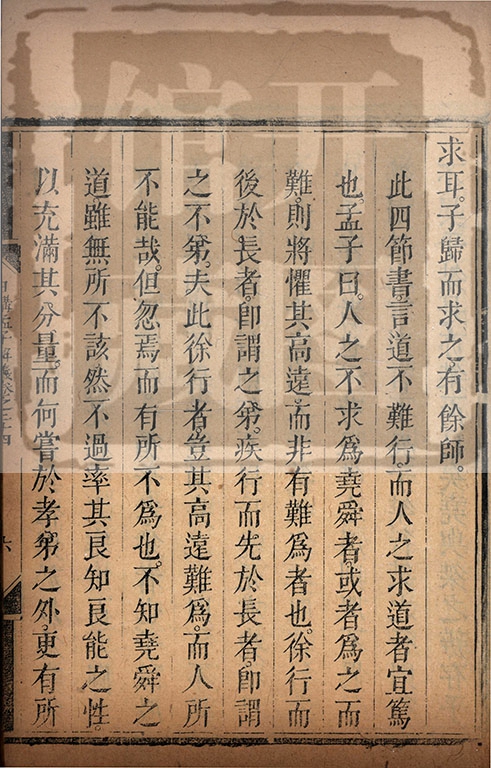 求耳。子歸而求之有餘師。
此四節書言道不難行。而人之求道者宜篤
也。孟子曰。人之不求為堯舜者。或者為之而
難。則將懼其高遠。而非有難為者也。徐行而
後於長者。即謂之弟。疾行而先於長者。即謂
之不弟。夫此徐行者。豈其高遠難為。而人所
不能哉。但忽焉而有所不為也。不知堯舜之
道雖無所不該。然不過率其良知良能之性。
以充滿其分量。而何嘗於孝弟之外。更有所